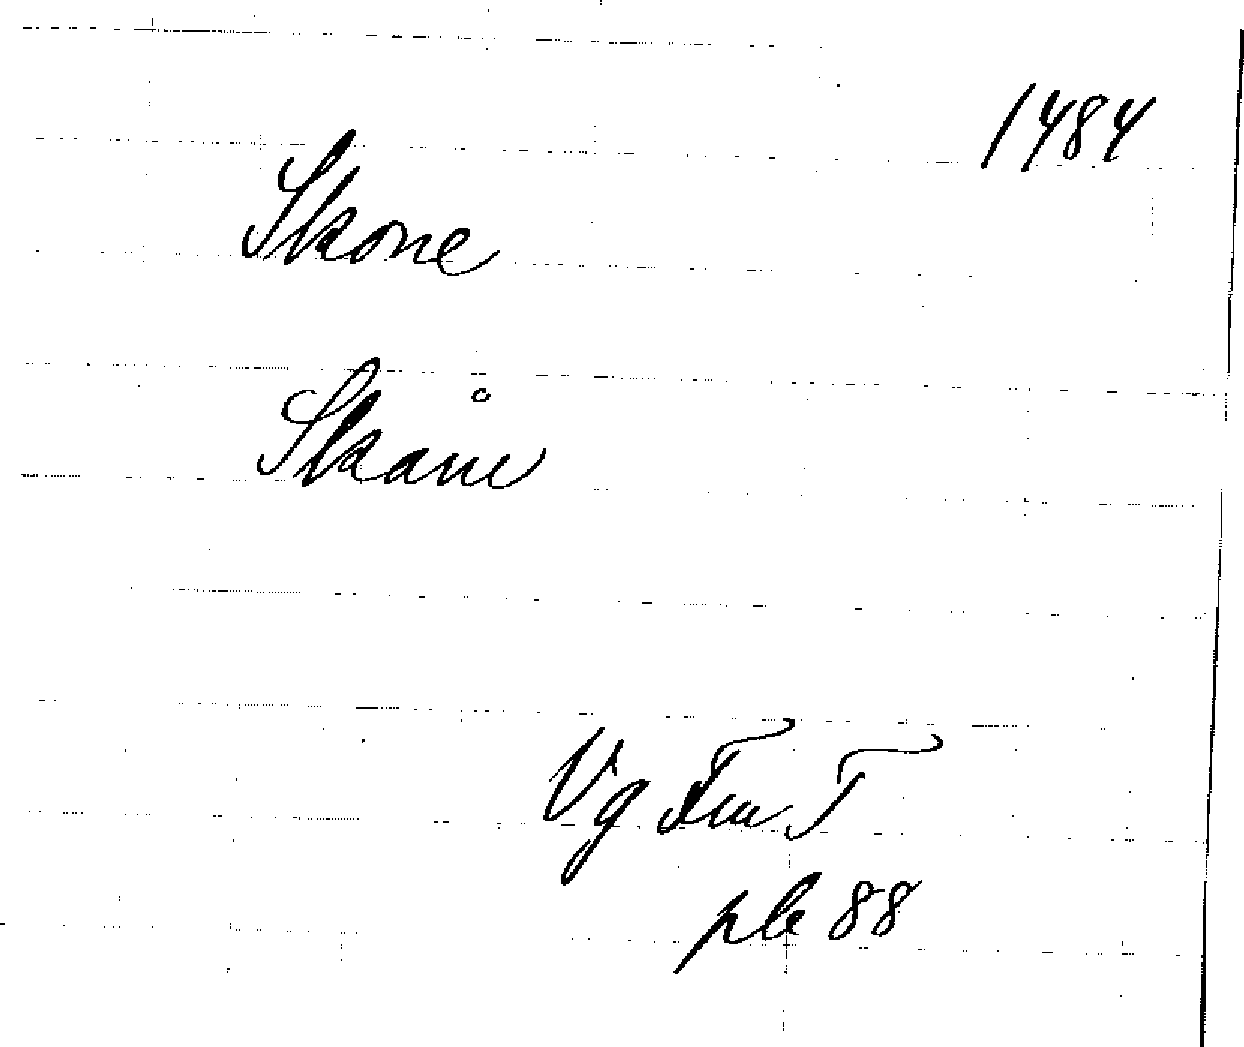 1484
Skone
Skåne
Vg Fm T
pb 88